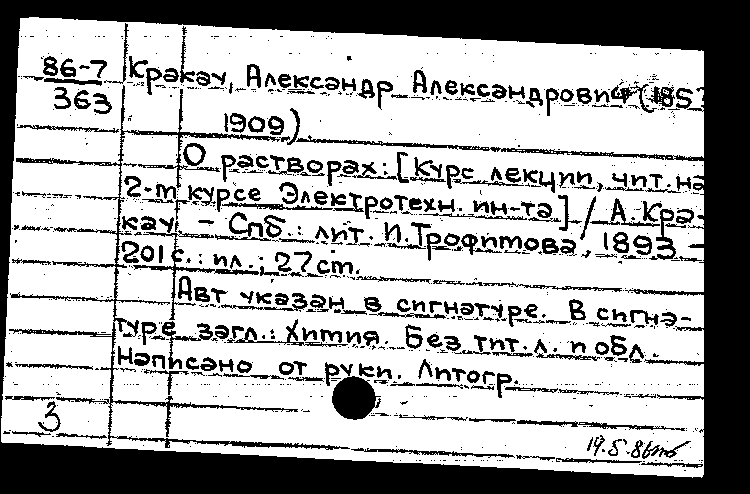 86-7
363
Кракау, Александр Александрович (185
1909).
О растворах: [Курс лекции, чит. на
2-м курсе Электротехн. ин-та] / А. Кра-
кау. – Спб.: лит. И. Трофимова, 1893 –
201 с.: ил.; 27 см.
Авт указан в сигнатуре. В сигна-
туре загл.: Химия. Без тит. л. и обл.
Написано от руки. Литогр.
3
19.5.86